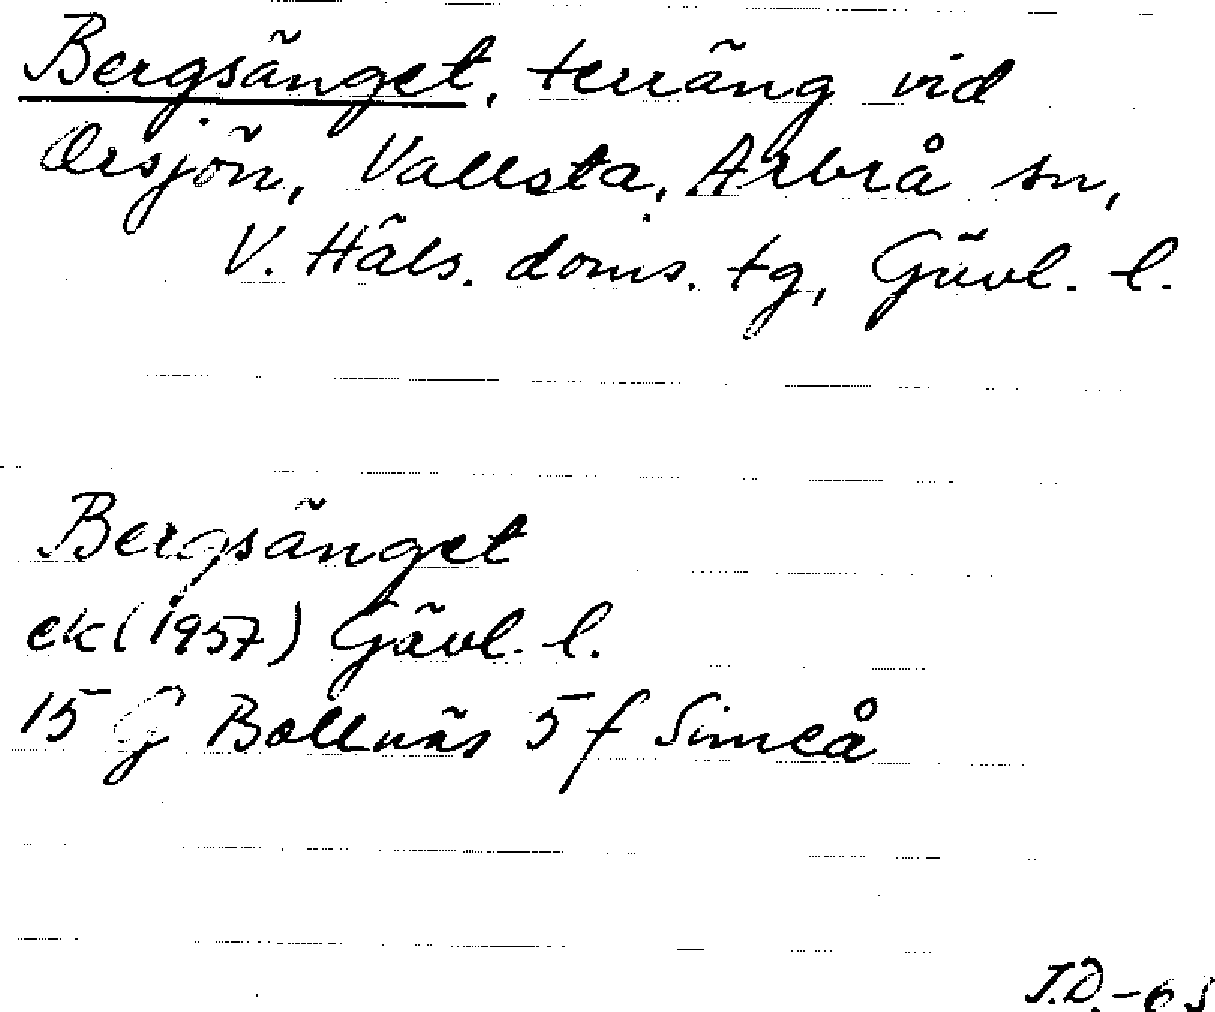 Bergsänget, terräng vid
Orsjön, Vallsta, Arbrå sn,
V. Häls. doms. tg, Gävl. l.
Bergsänget
ek (1957) Gävl. l.
15 G Bollnäs 5 f Simeå
J.D.-65